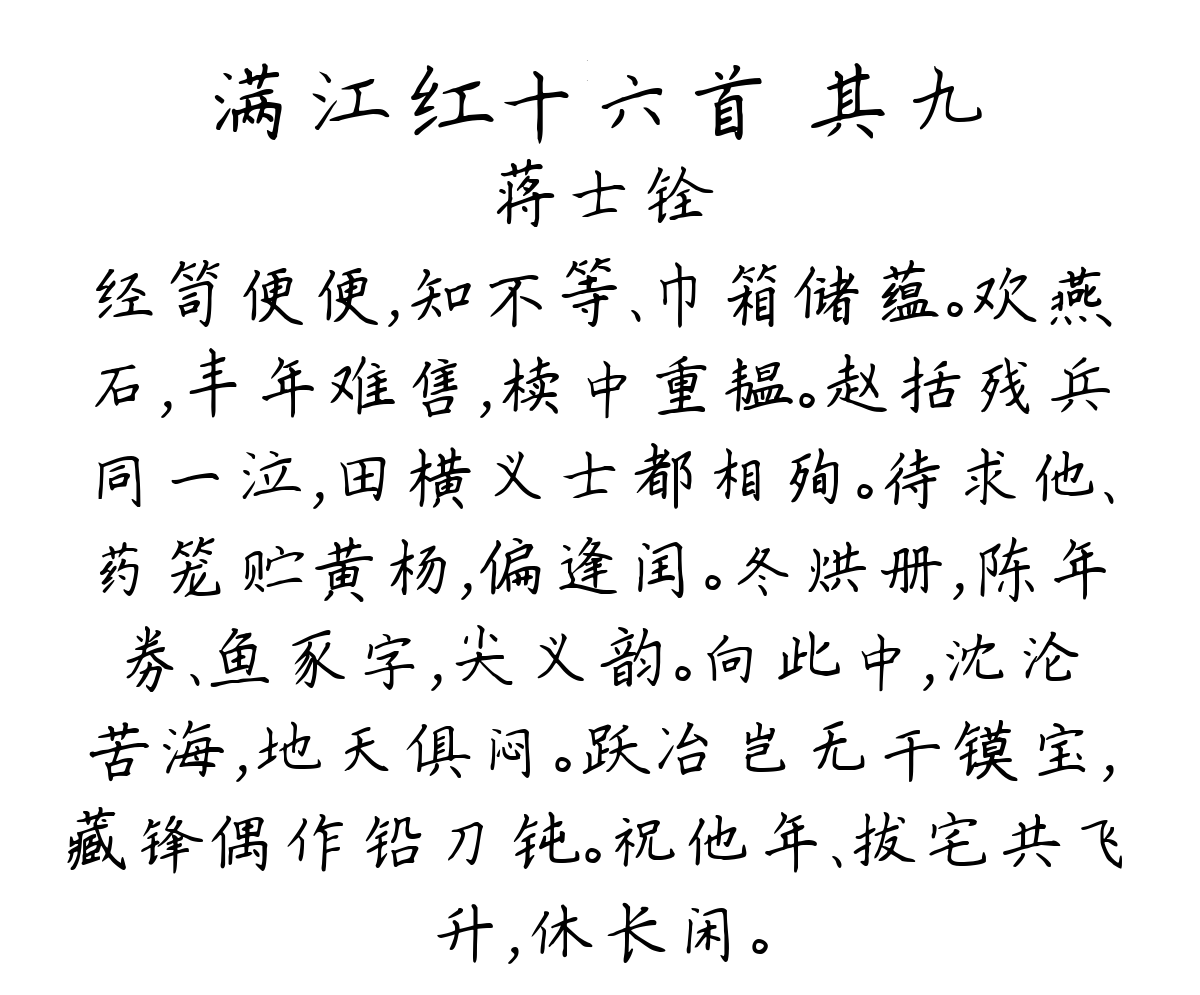 满江红十六首 其九
蒋士铨
经笥便便,知不等、巾箱储蕴。欢燕
石,丰年难售,椟中重韫。赵括残兵
同一泣,田横义士都相殉。待求他、
药笼贮黄杨,偏逢闰。冬烘册,陈年
券、鱼豕字,尖义韵。向此中,沈沦
苦海,地天俱闷。跃冶岂无干镆宝,
藏锋偶作铅刀钝。祝他年、拔宅共飞
升,休长闲。